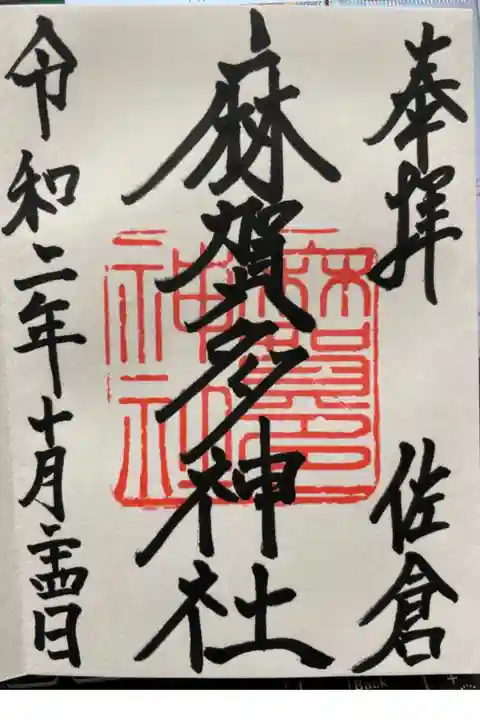 奉拝 佐倉
麻賀多神社
令和二年十月二十四日
麻賀多
神社
Back